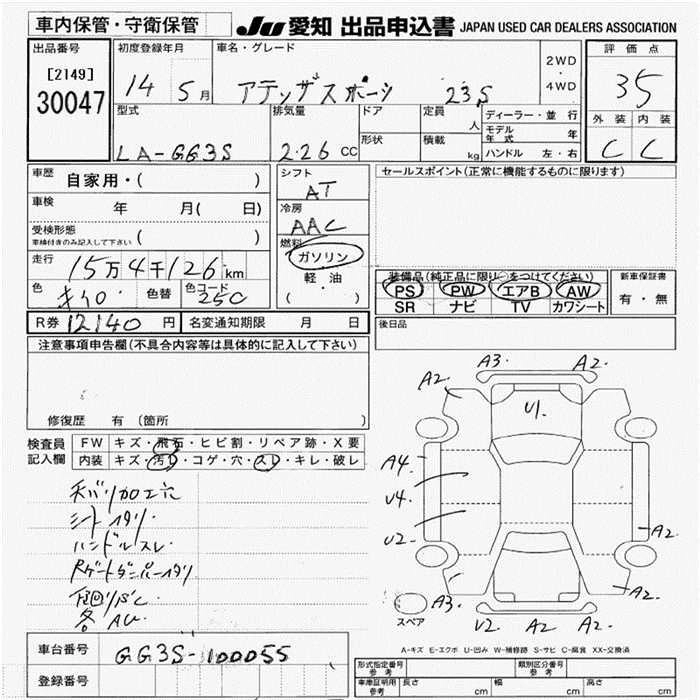 車内保管・守衛保管
JU 愛知 出品申込書 JAPAN USED CAR DEALERS ASSOCIATION
出品番号
[2149]
30047
初度登録年月
14 5月
車名・グレード
アテンザスポーツ 23S
2WD
・
4WD
評価点
3.5
外装 内装
C C
型式
LA-GG3S
排気量
2.26 CC
ドア
形状
定員
人
積載
kg
ディーラー・並行
モデル年式 年
ハンドル 左・右
車歴
自家用・( )
車検
年 月( 日)
受検形態
車検付きのみ記入して下さい ( )
走行
15万4千126 km
色
キ10
色替
色コード
25C
シフト
AT
冷房
AAC
燃料
ガソリン
軽・油
( ・ )
セールスポイント(正常に機能するものに限ります)
装備品(純正品に限り○をつけてください)
PS PW エアB AW
SR ナビ TV カワシート
新車保証書
有・無
R券 12140 円
名変通知期限 月 日
後日品
注意事項申告欄(不具合内容等は具体的に記入して下さい)
修復歴 有 (箇所 )
検査員
記入欄
FW キズ・飛石・ヒビ割・リペア跡・X要
内装 キズ・汚レ・コゲ・穴・スレ・キレ・破レ
天バリ加工穴
シートイタリ・
ハンドルスレ
Rゲートダンパーイタリ
各AU
A2. A3. A2.
U1.
A4.
U4.
U2.
A2.
A3. A2.
U2 A2 A2.
スペア
A-キズ E-エクボ U-凹み W-補修跡 S-サビ C-腐食 XX-交換済
車台番号
GG3S-100055
登録番号
形式指定番号
参考
類別区分番号
参考
車庫証明用
参考
長さ cm
幅 cm
高さ cm